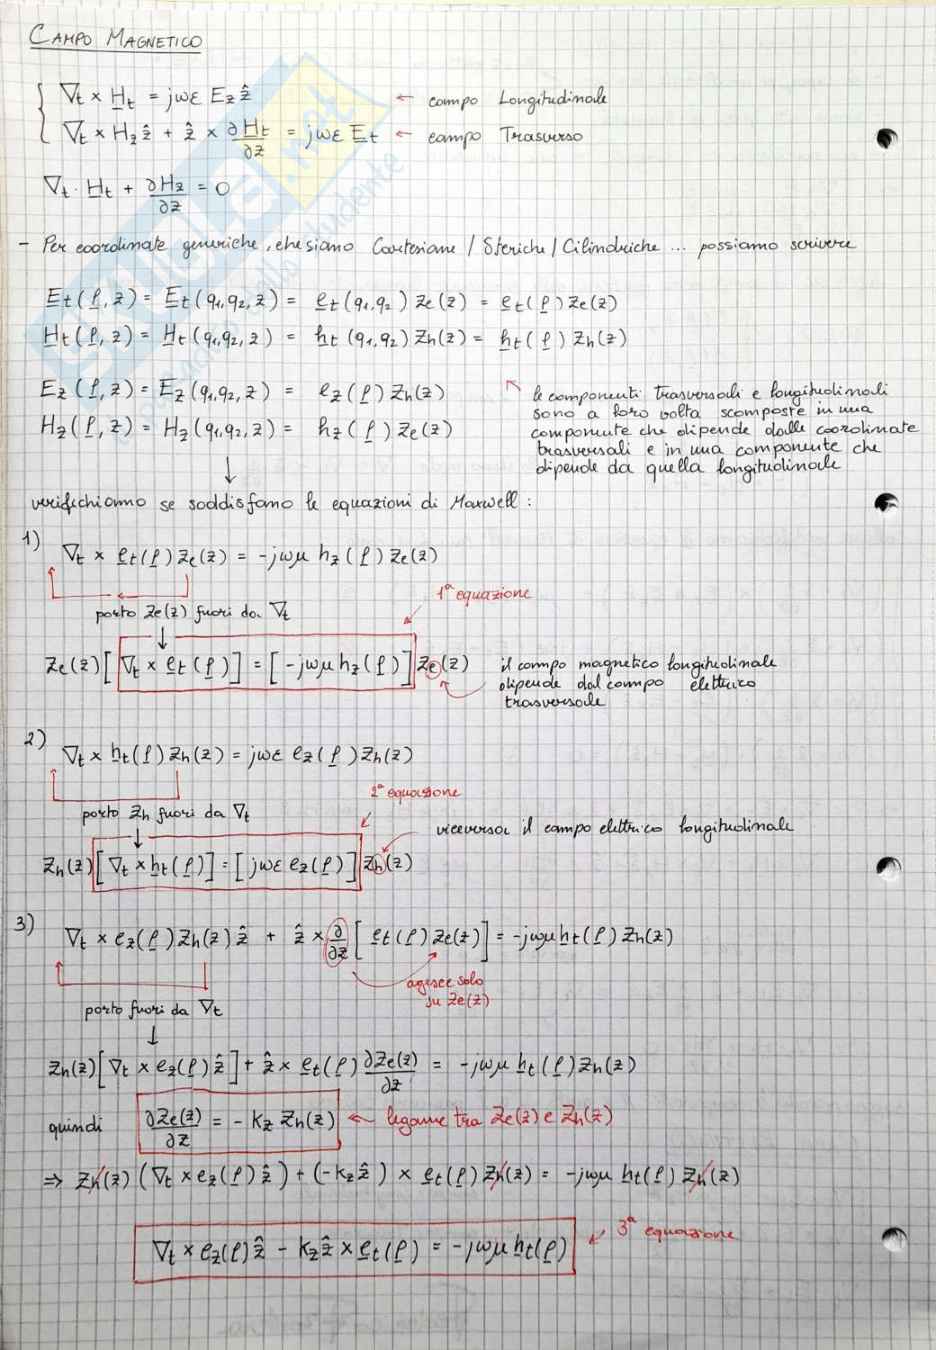 CAMPO MAGNETICO
∇t × Ht = jωε Ez ẑ ← campo Longitudinale
∇t × Hz ẑ + ẑ × ∂Ht/∂z = jωε Et ← campo Trasverso
∇t · Ht + ∂Hz/∂z = 0
- Per coordinate generiche, che siano Cartesiane / Sferiche / Cilindriche ... possiamo scrivere
Et(ρ, z) = Et(q1,q2, z) = et(q1,q2) Ze(z) = et(ρ) Ze(z)
Ht(ρ, z) = Ht(q1,q2, z) = ht(q1,q2) Zh(z) = ht(ρ) Zh(z)
Ez(ρ, z) = Ez(q1,q2, z) = ez(ρ) Zh(z)
Hz(ρ, z) = Hz(q1,q2, z) = hz(ρ) Ze(z)
le componenti trasversali e longitudinali
sono a loro volta scomposte in una
componente che dipende dalle coordinate
trasversali e in una componente che
dipende da quella longitudinale
verifichiamo se soddisfano le equazioni di Maxwell :
1) ∇t × et(ρ) Ze(z) = -jωμ hz(ρ) Ze(z)
porto Ze(z) fuori da ∇t
1ª equazione
Ze(z) [ ∇t × et(ρ) ] = [ -jωμ hz(ρ) ] Ze(z)
il campo magnetico longitudinale
dipende dal campo elettrico
trasversale
2) ∇t × ht(ρ) Zh(z) = jωε ez(ρ) Zh(z)
porto Zh fuori da ∇t
2ª equazione
viceversa il campo elettrico longitudinale
Zh(z) [ ∇t × ht(ρ) ] = [ jωε ez(ρ) ] Zh(z)
3) ∇t × ez(ρ) Zh(z) ẑ + ẑ × ∂/∂z [ et(ρ) Ze(z) ] = -jωμ ht(ρ) Zh(z)
agisce solo
su Ze(z)
porto fuori da ∇t
Zh(z) [ ∇t × ez(ρ) ẑ ] + ẑ × et(ρ) ∂Ze(z)/∂z = -jωμ ht(ρ) Zh(z)
quindi ∂Ze(z)/∂z = - Kz Zh(z) ← legame tra Ze(z) e Zh(z)
⇒ Zh(z) ( ∇t × ez(ρ) ẑ ) + (-kz ẑ ) × et(ρ) Zh(z) = -jωμ ht(ρ) Zh(z)
∇t × ez(ρ) ẑ - Kz ẑ × et(ρ) = -jωμ ht(ρ)
3ª equazione